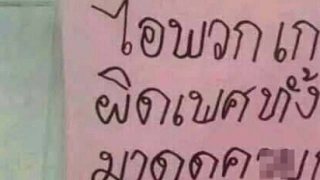 ไอพวกเก
ผิดเพศทั้
มาดูดค